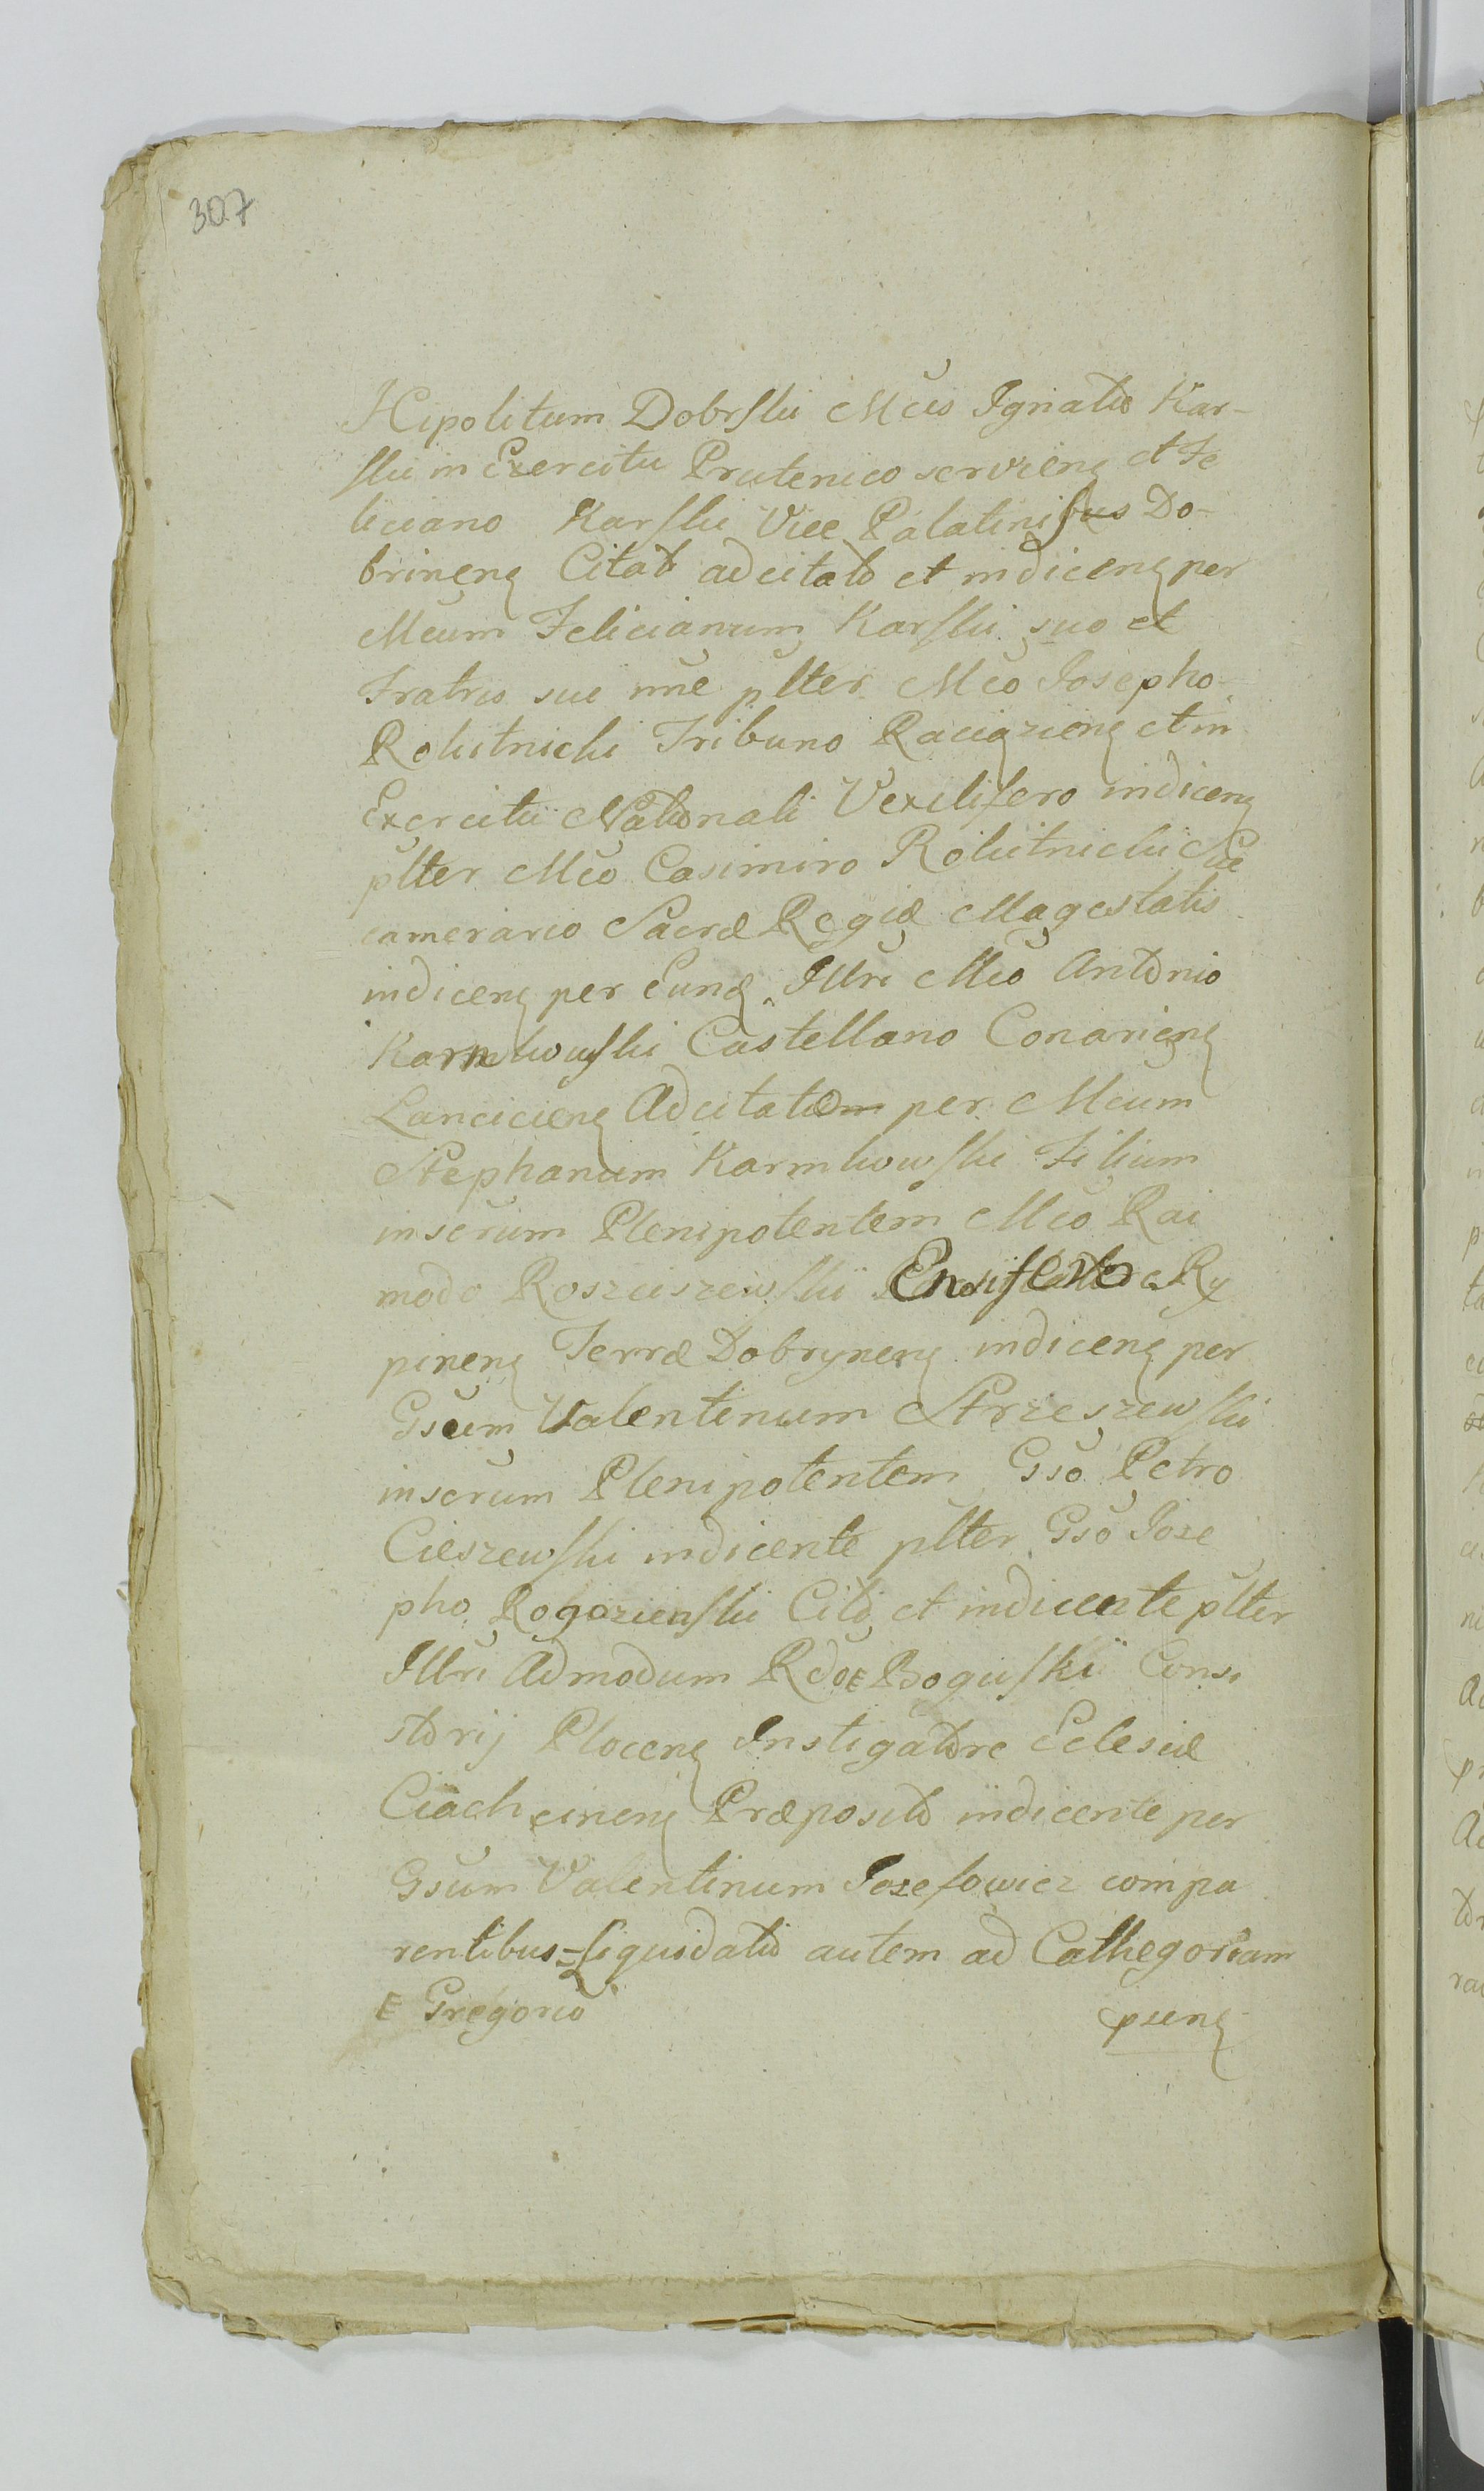 307
Hipolitum Dobrski Mcis Ignatio Kar-
ski in Exercitu Prutenico servien et Fe
liciano Karski Vice Palatinibus Do-
brinen Citato adcitato et indicen per
Mcum Felicianum Karski suo et
Fratris sui nne plter Mco Josepho
Rokitnicki Tribuno Raciązien et in
Exercitu Nationali Vexilifero indicen
plter Mco Casimiro Rokitnicki Suc
camerario Sacræ Regiæ Magestatis
indicen per Eund Illri Mco Antonio
Karnkowski Castellano Conarien
Lancicien Adcitato per Mcum
Stephanum Karnkowski Filium
inscrum Plenipotentem Mco Rai
mdo Rosciszewski Ensifero Ry
pinen Terræ Dobrynen indicen per
Gsum Valentinum Strzeszewski
inscrum Plenipotentem Gso Petro
Cieszewski indicente plter Gso Joze
pho Rogozienski Cito et indicente plter
Illri Admodum Rdo E Boguski Consi
storij Plocen Instigatore Eclesiæ
Ciachcinen Præposito indicente per
Gsum Valentinum Jozefowicz compa
rentibus = Liquidatio autem ad Cathegoriam
E Gregorio
psen